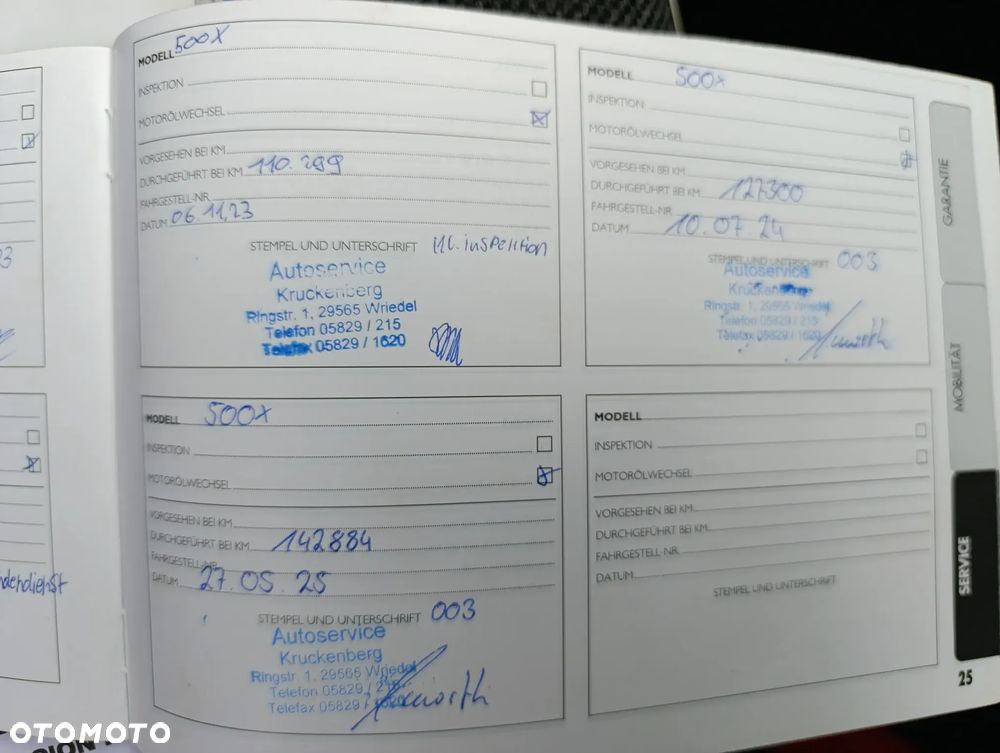 MODELL 500X
INSPEKTION
MOTORÖLWECHSEL
VORGESEHEN BEI KM
DURCHGEFÜHRT BEI KM 110.299
FAHRGESTELL-NR.
DATUM 06.11,23
STEMPEL UND UNTERSCHRIFT
Autoservice
Kruckenberg
Ringstr. 1, 29565 Wriedel
Telefon 05829 / 215
Telefax 05829 / 1620
MODELL 500X
INSPEKTION
MOTORÖLWECHSEL
VORGESEHEN BEI KM
DURCHGEFÜHRT BEI KM 127300
FAHRGESTELL-NR.
DATUM 10.07.24
STEMPEL UND UNTERSCHRIFT 003
Autoservice
Kruckenberg
Ringstr. 1, 29565 Wriedel
Telefon 05829 / 215
Telefax 05829 / 1620
MODELL 500X
INSPEKTION
MOTORÖLWECHSEL
VORGESEHEN BEI KM
DURCHGEFÜHRT BEI KM 142884
FAHRGESTELL-NR.
DATUM 27.05.25
STEMPEL UND UNTERSCHRIFT 003
Autoservice
Kruckenberg
Ringstr. 1, 29565 Wriedel
Telefon 05829 / 215
Telefax 05829 / 1620
MODELL
INSPEKTION
MOTORÖLWECHSEL
VORGESEHEN BEI KM
DURCHGEFÜHRT BEI KM
FAHRGESTELL-NR.
DATUM
STEMPEL UND UNTERSCHRIFT
GARANTIE
MOBILITÄT
SERVICE
25
OTOMOTO